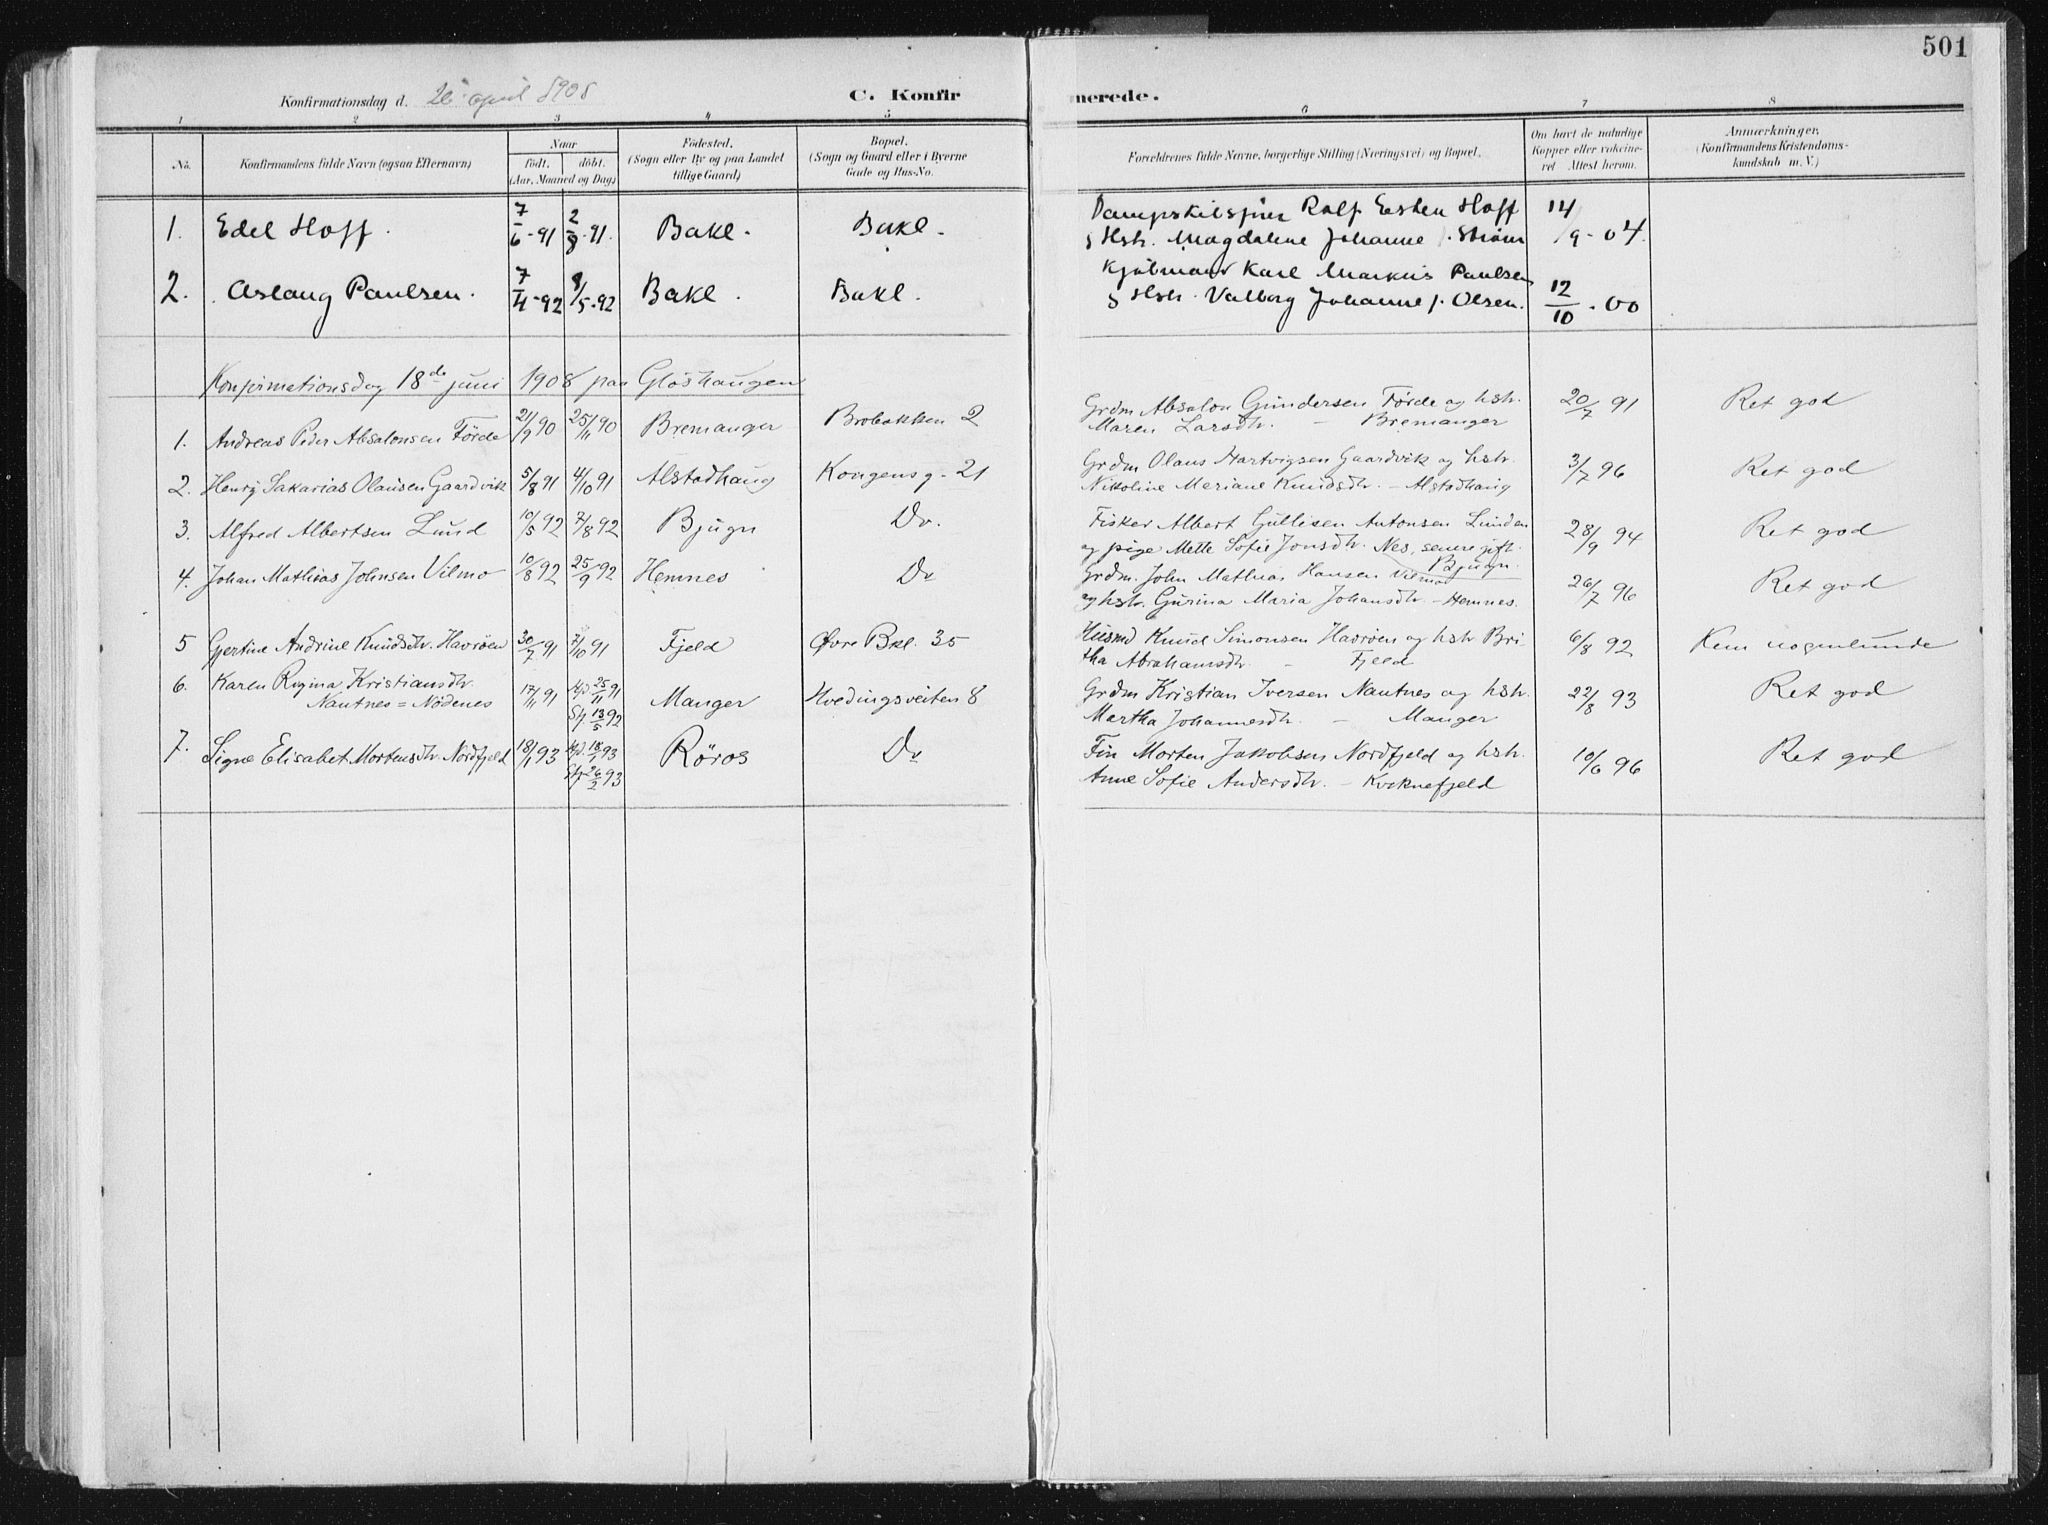 501
Konfirmationsdag d. 26 april 1908
C. Konfirmerede.
1 2 3 4 5 6 7 8
No. Konfirmandens fulde Navn (ogsaa Efternavn) Naar födt. döbt. (Aar, Maaned og Dag) Födested. (Sogn eller By og paa Landet tillige Gaard) Bopæl. (Sogn og Gaard eller i Byerne Gade og Hus-No. Forældrenes fulde Navne, borgerlige Stilling (Næringsvei) og Bopæl. Om havt de naturlige Kopper eller vaksineret Attest herom. Anmærkninger. (Konfirmandens Kristendomskundskab m. V.)
1. Edel Hoff. 7/6-91 2/8-91. Bakl. Bakl. Rolf Esten Hoff 14/9-04.
Hstr. Magdalene Johanne f. Strøm
2. Aslaug Paulsen. 7/4-92 8/5-92 Bakl. Bakl. Kjøbmand Karl Markus Paulsen 12/10-00
Hstr. Valborg Johanne f. Olsen.
Konfirmationsdag 18de juni 1908 paa Gløshaugen
1. Andreas Peder Absalonsen Förde 21/9 90 25/11 90 Bremanger Brobakken 2 Grdm Absalon Gundersen Förde og hstr. 20/7 91 Ret god
Maren Larsdtr. - Bremanger
2. Henrij Sakarias Olausen Gaardvik 5/8 91 4/10 91 Alstadhaug Kongensg. 21 Grdm Olaus Hartvigsen Gaardvik og hstr. 3/7 96 Ret god
Nikoline Meriane Knudsdtr. - Alstadhaug
3. Alfred Albertsen Lund 10/5 92 7/8 92 Bjugn Do. Fisker Albert Gulliksen Antonsen Lunden 28/9 94 Ret god
og pige Mette Sofie Jonsdtr. Nes, senere gift. Bjugn.
4. Johan Mathias Johnsen Vilmo 10/8 92 25/9 92 Hemnes Do Grdm. John Mathias Hansen Vilmo 26/7 96 Ret god
og hstr. Gurina Maria Johansdtr. - Hemnes.
5 Gjertine Andrine Knudsdtr. Havröen 30/7 91 7/10 91 Fjeld Øvre Bkl. 35 Husmd Knud Simonsen Havröen og hstr Bri- 6/8 92 Kun nogenlunde
tha Abrahamsdtr. - Fjeld
6. Karen Regina Kristiansdtr. Nautnes = Nödenes 17/11 91 Hjd. 25/11 91 Stf. 13/5 92 Manger Hvedingsveiten 8 Grdm Kristian Iversen Nautnes og hstr. 22/8 93 Ret god
Martha Johannesdtr. - Manger
7. Signe Elisabet Mortensdtr. Nordfjeld 18/1 93 Hjd. 18/1 93 Stf. 26/2 93 Röros Do Morten Jakobsen Nordfjeld og hstr. 10/6 96 Ret god
Anne Sofie Andersdtr. - Kveknefjeld